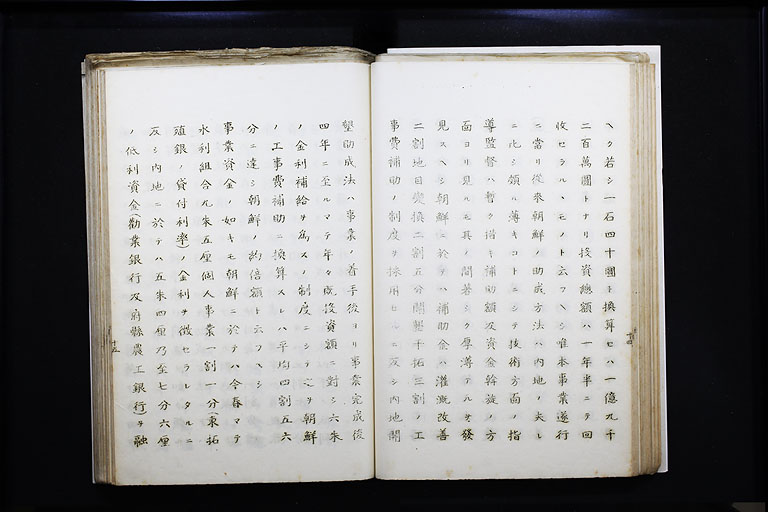 ヘク若シ一石四十圓ト換算セハ一億九千
二百萬圓トナリ投資總額ハ一年半ニテ回
收セラルヽモノト云フヘシ唯本事業遂行
ニ當リ從來朝鮮ノ助成方法ハ内地ノ夫レ
ニ比シ頗ル薄キコトニシテ技術方面ノ指
導監督ハ暫ク措キ補助額及資金斡旋ノ方
面ヨリ見ルモ其ノ間著シク厚薄アルヲ發
見スヘシ朝鮮ニ於テハ補助金ハ灌漑改善
二割地目變換二割五分開墾干拓三割ノ工
事費補助ノ制度ヲ採用セルニ反シ内地開
十四
墾助成法ハ事業ノ着手後ヨリ事業完成後
四年ニ至ルマテ年々既投資額ニ對シ六朱
ノ金利補給ヲ爲スノ制度ニシテ之ヲ朝鮮
ノ工事費補助ニ換算スレハ平均四割五六
分ニ達シ朝鮮ノ約倍額ト云フヘシ
事業資金ノ如キモ朝鮮ニ於テハ今春マテ
水利組合九朱五厘個人事業一割一分(東拓
殖銀ノ貸付利率)ノ金利ヲ徴セラレタルニ
反シ内地ニ於テハ五朱四厘乃至七分六厘
ノ低利資金(勸業銀行及府縣農工銀行)ヲ融
十五